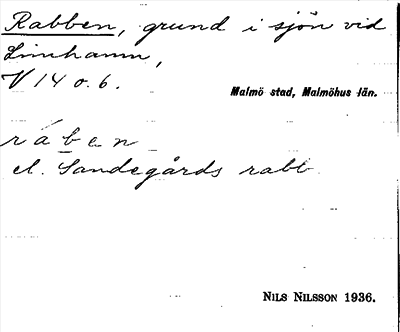 Rabben, grund i sjön vid
Limhamn,
V 14 o. 6.
Malmö stad, Malmöhus län.
rába̱n
el. Sandegårds rabb
NILS NILSSON 1936.